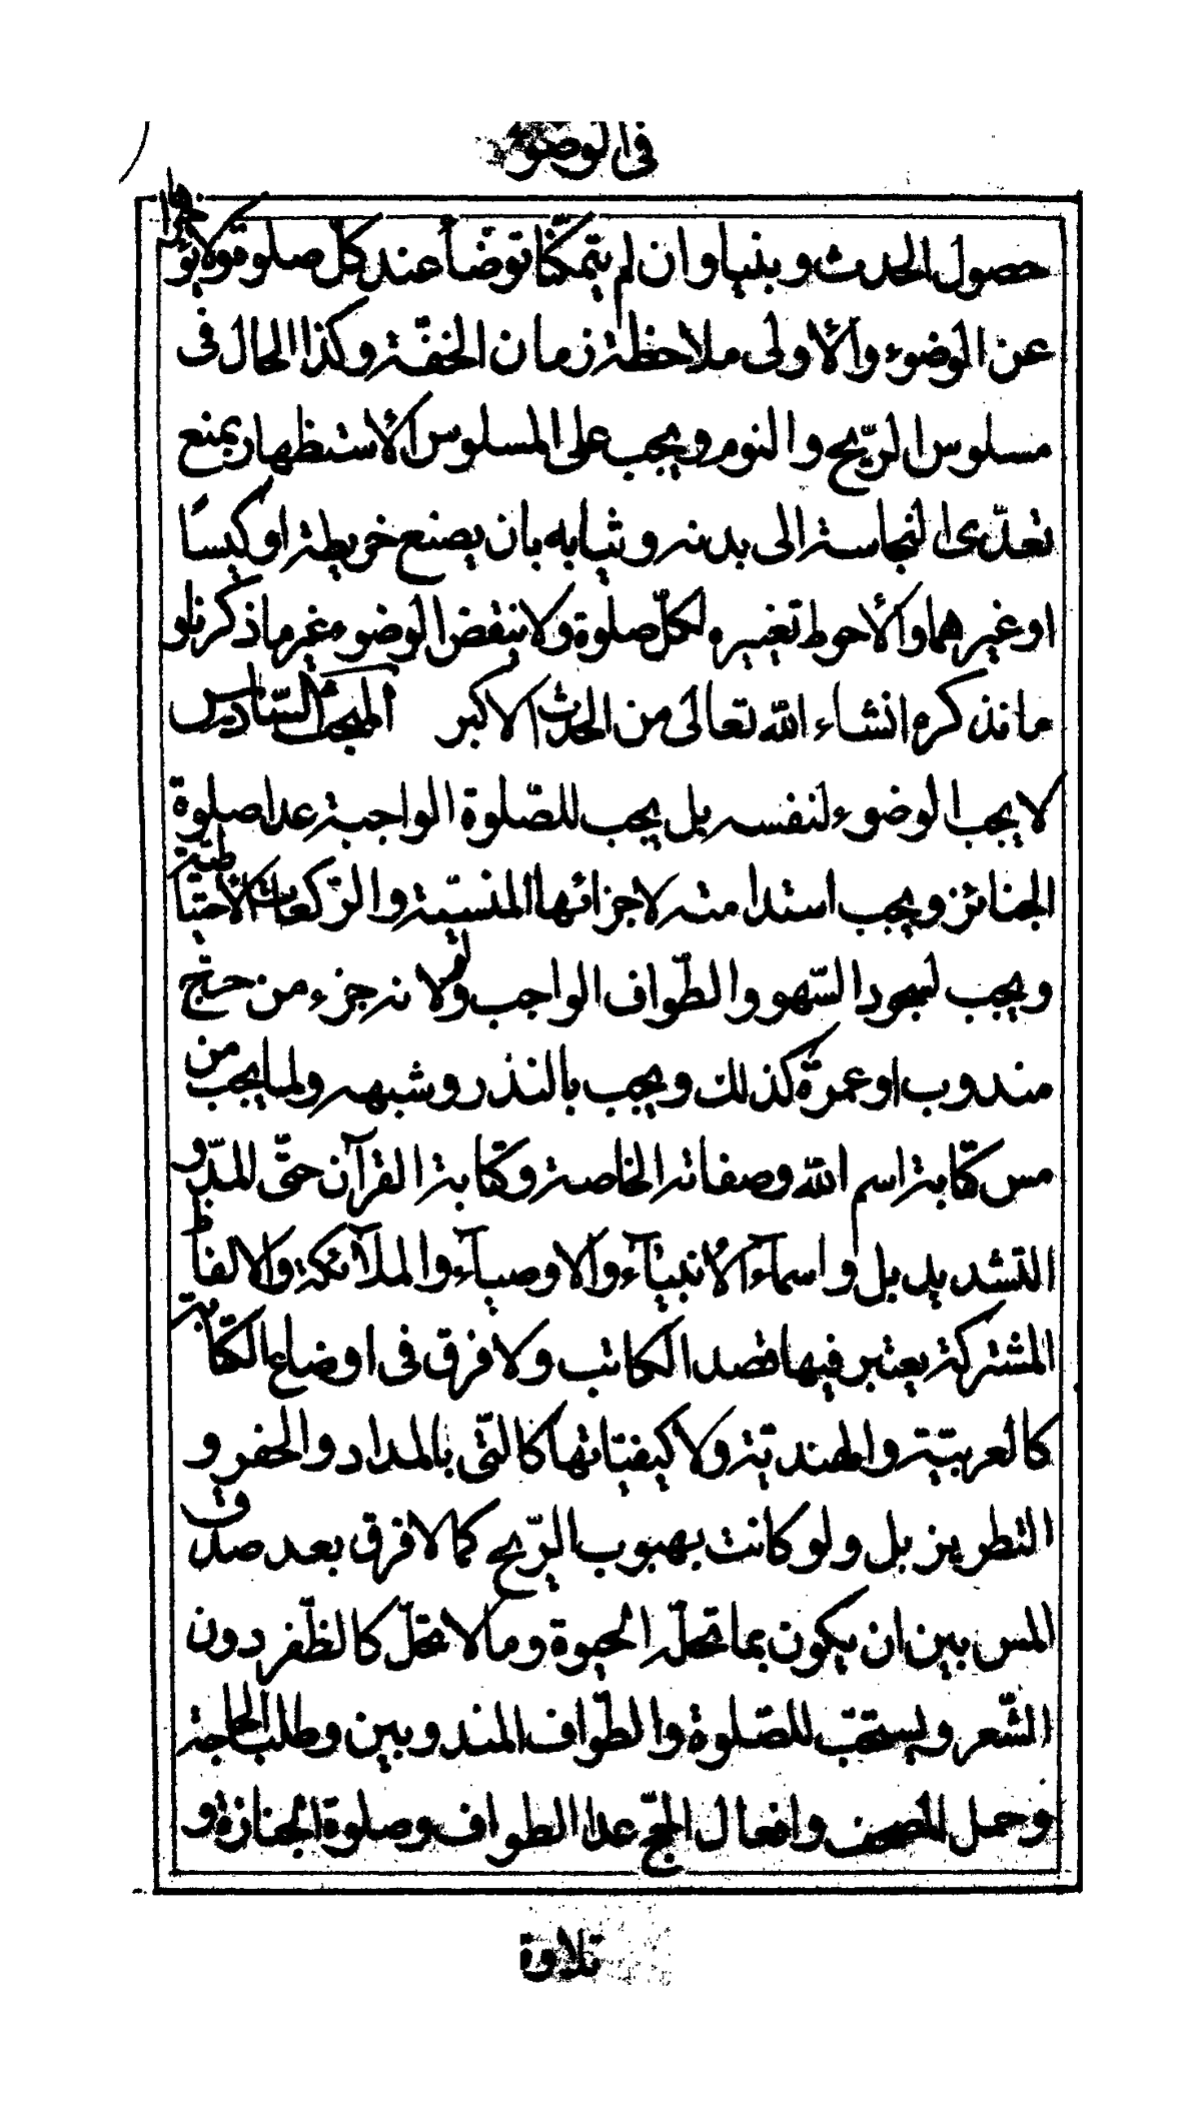 في الوضوء
حصول الحدث وبنيا وان لم يتمكّنا توضّأ عند كلّ صلوة ولا يؤخرا
عن الوضوء والأولى ملاحظة زمان الخفّة وكذا الحال فى
مسلوس الرّيح والنوم ويجب على المسلوس الأستظهار بمنع
تعدّى النجاسة الى بدنه وثيابه بان يصنع خريطة او كيسًا
او غيرهما والأحوط تغييره لكلّ صلوة ولا ينقض الوضوء غير ما ذكرنا و
ما نذكره انشاء اللّه تعالى من الحدث الاكبر المبحث السّادس
لا يجب الوضوء لنفسه بل يجب للصّلوة الواجبة عدا صلوة
الجنائز ويجب استدامته لاجزائها المنسيّة والرّكعات الأحتياطيّة
ويجب لسجود السّهو والطّواف الواجب ولو لانه جزء من حجّ
مندوب او عمرة كذلك ويجب بالنذر وشبهه ولما يجب من
مس كتابة اسم اللّه وصفاته الخاصة وكتابة القرآن حتّى المدّ و
التشديد بل واسمآء الأنبيآء والاوصيآء والملآئكة والالفاظ
المشتركة يعتبر فيها قصد الكاتب ولا فرق فى اوضاع الكتابة
كالعربيّة والهنديّة ولا كيفيّاتها كالتّى بالمداد والحفر و
التطريز بل ولو كانت بهبوب الرّيح كما لا فرق بعد صدق
المس بين ان يكون بما تحلّه الحيوة وما لا تحلّ كالظّفر دون
الشّعر ويستحبّ للصّلوة والطّواف المندوبين وطلب الحاجة
وحمل المصحف وافعال الحجّ عدا الطواف وصلوة الجنازة و
تلاوة